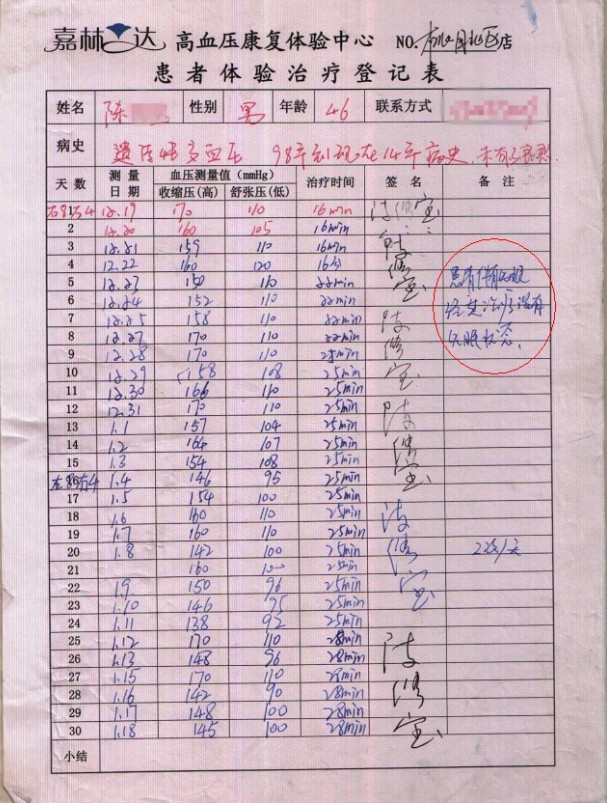 嘉林达 高血压康复体验中心 NO. 店
患者体验治疗登记表
姓名 陈 性别 男 年龄 46 联系方式
病史 遗传性高血压 98年到现在14年病史
天数 测量日期 血压测量值(mmHg) 收缩压(高) 舒张压(低) 治疗时间 签名 备注
1 12.19 170 110 16min
2 12.20 160 105 16min
3 12.21 159 110 16min
4 12.22 160 120 16分
5 12.23 150 110 22min
6 12.24 152 110 22min
7 12.25 158 110 22min
8 12.27 170 110 22min
9 12.28 170 110 25min
10 12.29 158 108 25min
11 12.30 166 110 25min
12 12.31 170 110 25min
13 1.1 157 104 25min
14 1.2 164 107 25min
15 1.3 154 108 25min
16 1.4 146 95 25min
17 1.5 154 100 25min
18 1.6 160 110 25min
19 1.7 160 110 25min
20 1.8 142 100 25min 2次/天
21 160 100 25min
22 1.9 150 96 25min
23 1.10 146 95 25min
24 1.11 138 92 25min
25 1.12 170 110 28min
26 1.13 148 96 28min
27 1.15 170 110 28min
28 1.16 142 90 28min
29 1.17 148 100 28min
30 1.18 145 100 28min
小结